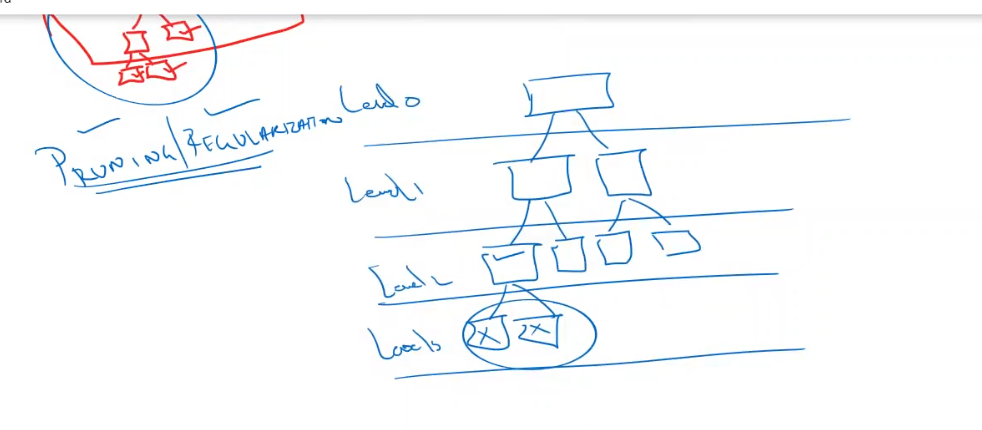 PRUNING/REGULARIZATION
Level 0
Level 1
Level 2
Level 3
2X 2X